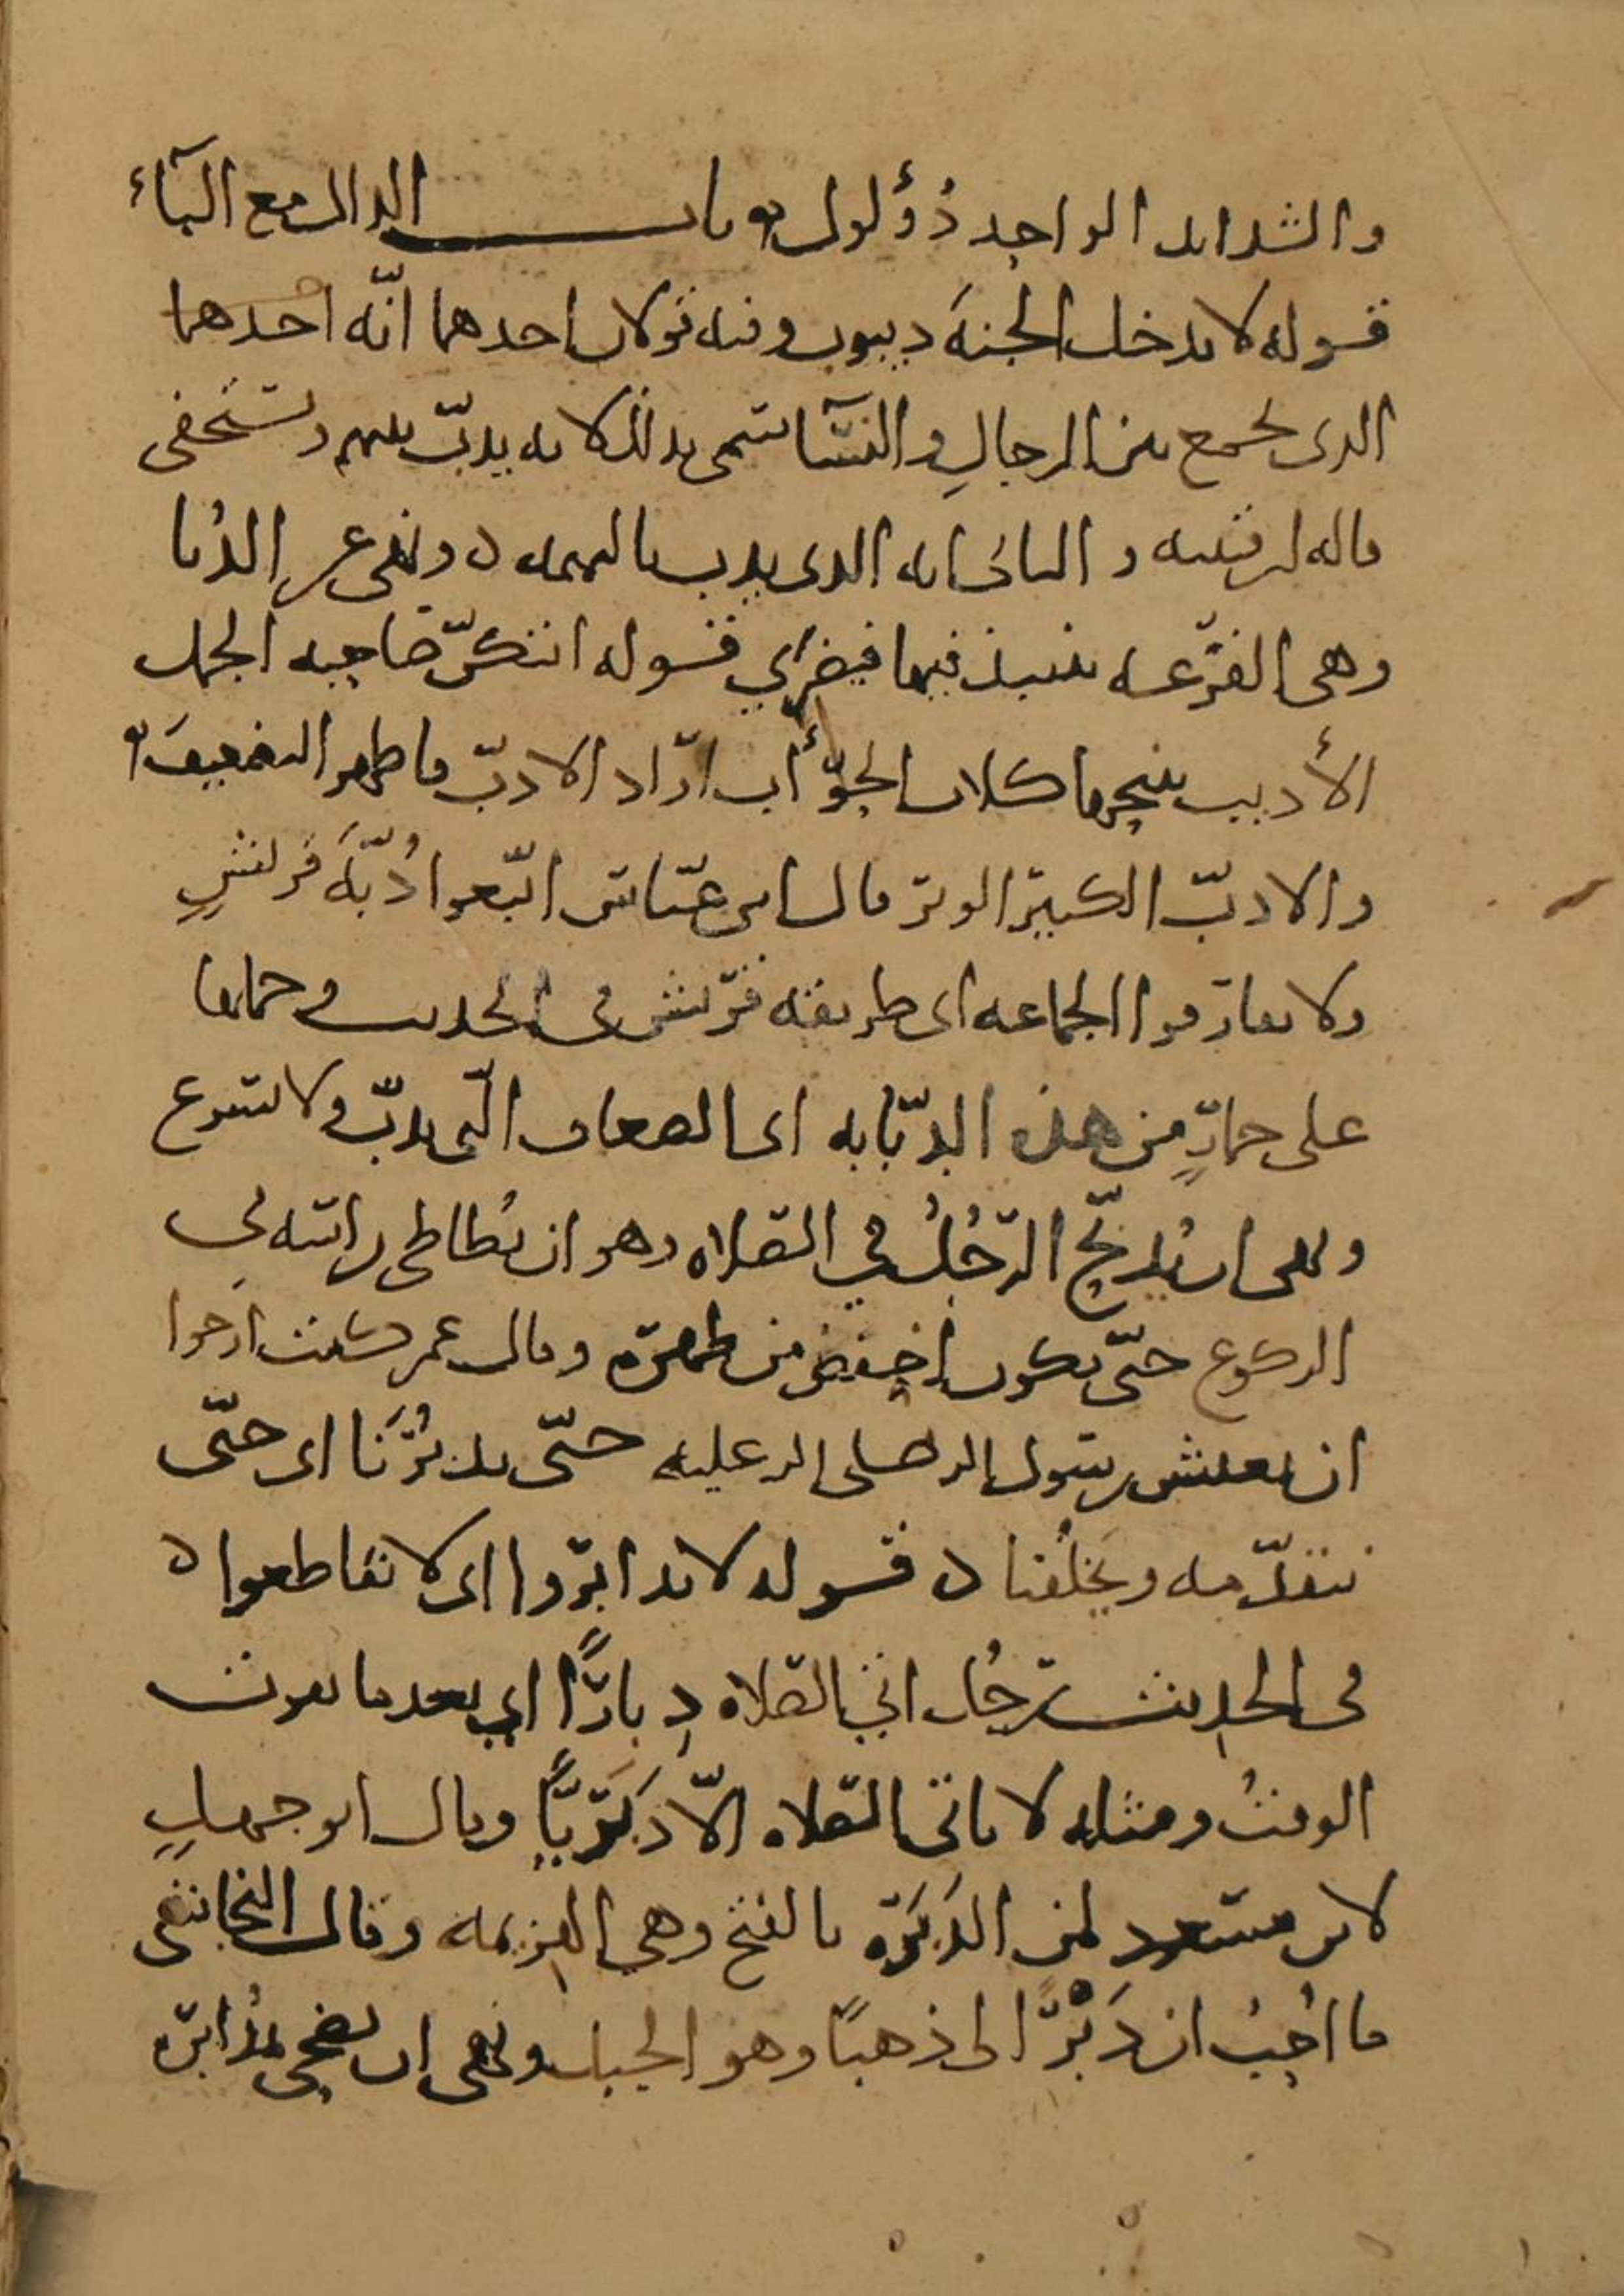 والشدايد الواحد دُؤلول باب الدال مع البآء
قوله لا يدخل الجنة ديبوب وفيه قولان احدهما انّه احدهما
الذي يجمع بين الرجالِ والنسآ سمى بذلك لانه يدبّ بينهم ويستخفى
والثاني انه الذي يدب بالنميمه ونهى عن الدُبا
وهي القرعه ينبذ فيها فيضري قوله ايتكنّ صاحبه الجمل
الأدبب تنبحها كلاب الحوأب اراد الادبّ فاظهر التضعيف
والادبّ الكبير الوبر قال ابن عبّاس اتّبعوا دُبّةَ قريشٍ
ولا تفارقوا الجماعه اى طريقة قريش فى الحديث وحملها
على حمارٍ من هذه الدبّابه اى الضعاف التى تدبّ ولا تسرع
ونهى ان يُدبّح الرّجُلُ في الصلاه وهو ان يُطاطى راسه فى
الركوع حتّى يكون اخفض من ظهره وقال عمر كنت ارجوا
ان يعيش رسول الله صلى الله عليه حتّى يدبُرَنا اى حتّى
نتقدّمه ويخلُفنا قوله لا تدابروا اى لا تقاطعوا
فى الحديث رجُل اتى الصلاه دِبارًا اي بعد ما يفوت
الوقتُ ومثله لا ياتى الصلاه الّا دَبَريًّا وقال ابو جهلٍ
لابن مسعود لمن الدَبَرَة بالفتح وهي الهزيمه وقال النجاشى
ما اُحِبُ ان دَبْرًا لى ذهبًا وهو الجبل ونهى ان يضحى بمُدابره